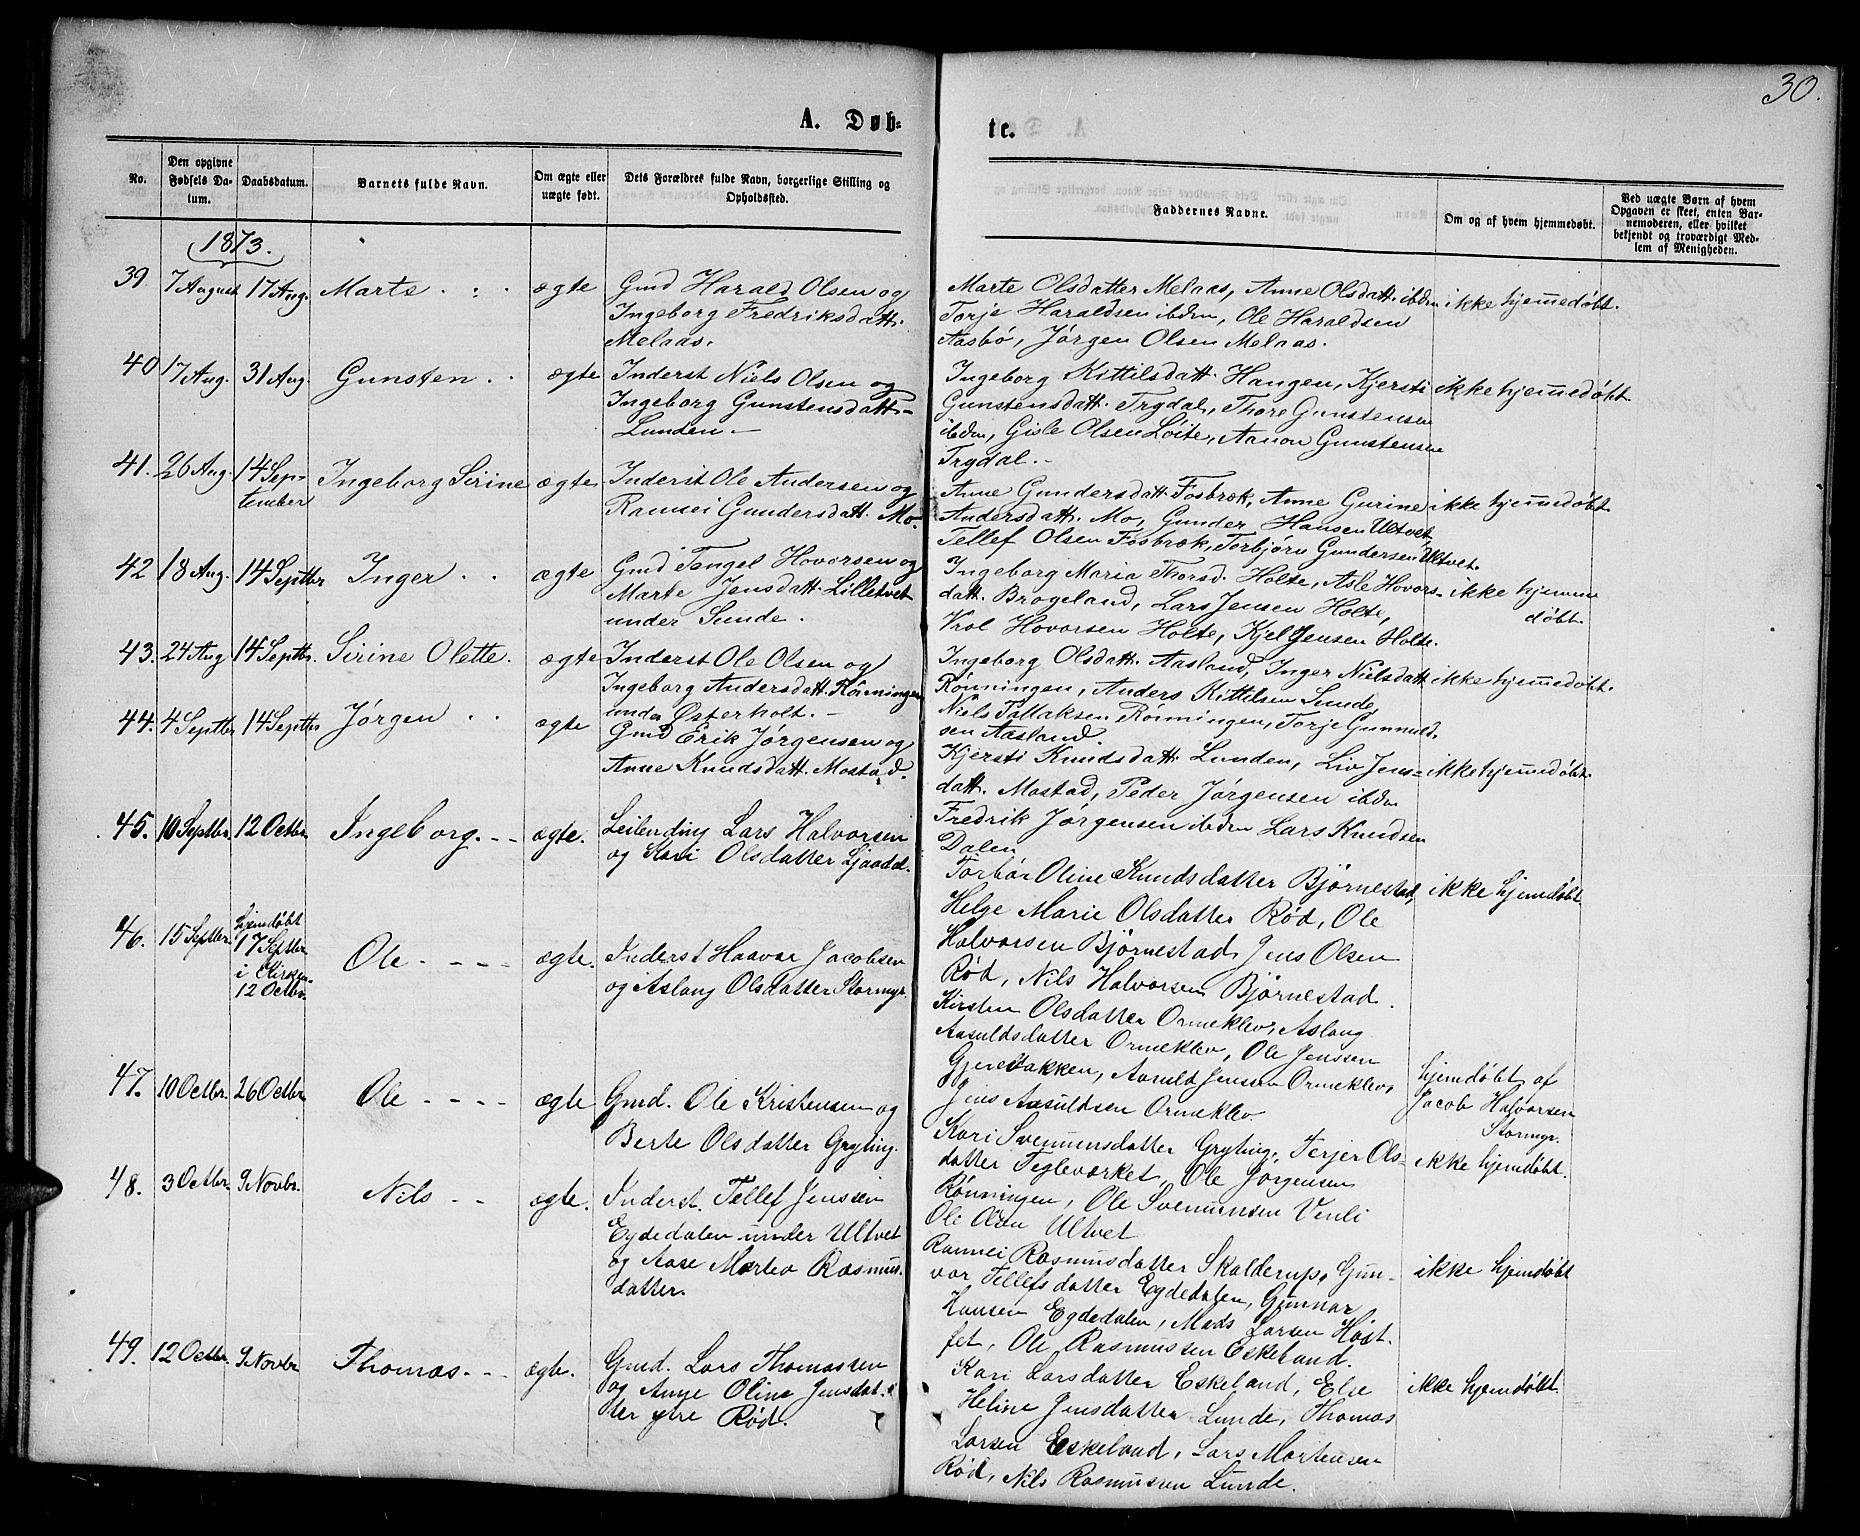 30.
A. Døb-
te.
No.
Den opgivne Fødsels Datum.
Daabsdatum.
Barnets fulde Navn.
Om ægte eller uægte født.
Dets Forældres fulde Navn, borgerlige Stilling og Opholdssted.
Faddernes Navne.
Om og af hvem hjemmedøbt.
Ved uægte Børn af hvem Opgaven er skeet, enten Barnemoderen, eller hvilket bekjendt og troværdigt Medlem af Menigheden.
1873.
39 7 August 17 Aug. Marte ægte
Gmd Harald Olsen og
Ingeborg Fredriksdatt.
Melaas.
Marte Olsdatter Melaas, Anne Olsdatt. ibdm
Torje Haraldsen ibdm, Ole Haraldsen
Aasbö, Jørgen Olsen Melaas.
ikke hjemedøbt.
40 17 Aug. 31 Aug. Gunsten ægte
Inderst Niels Olsen og
Ingeborg Gunstensdatt.
Lunden.
Ingeborg Kittilsdatt. Haugen, Kjersti
Gunstensdatt. Trydal, Thore Gunstensen
ibdm, Gisle Olsen Löite, Aanon Gunstensen
Trydal.
ikke hjemedøbt
41. 26 Aug. 14 Sep-
tember
Ingeborg Sirine ægte
Inderst Ole Andersen og
Rannei Gundersdatt. Mo.
Anne Gundersdatt. Fosbrok, Anne Gurine
Andersdatt. Mo, Gunder Hansen Ultvet,
Tellef Olsen Fosbrok, Torbjörn Gundersen Ultvet.
ikke hjemedøbt
42 18 Aug. 14 Septbr Inger ægte
Gmd Tangel Hovorsen og
Marte Jensdatt. Lilletvet
under Sunde.
Ingeborg Maria Thorsd. Holte, Asle Hovors-
datt. Brogeland, Lars Jensen Holte,
Vrol Hovorsen Holte, Kjel Jensen Holte.
ikke hjemme
døbt
43. 24 Aug 14 Septbr. Sirine Olette. ægte
Inderst Ole Olsen og
Ingeborg Andersdatt. Rönningen
under Østerholt.
Ingeborg Olsdatt. Aasland, Inger Nielsdatt
Rönningen, Anders Kittilsen Sunde,
Niels Tallaksen Rönningen, Torje Gunnuld-
sen Aasland.
ikke hjemedøbt.
44. 4 Septbr 14 Septbr Jørgen ægte
Gmd Erik Jørgensen og
Anne Knudsdatt. Mostad.
Kjersti Knudsdatt. Lunden, Liv Jens-
datt. Mostad, Peder Jørgensen ibdm
Fredrik Jørgensen ibdm Lars Knudsen
Dalen
ikke hjemedøbt
45. 10 Septbr. 12 Octbr. Ingeborg. ægte.
Leilending Lars Halvorsen
og Kari Olsdatter Ljaadal.
Torbör Oline Knudsdatter Björnestad,
Helge Marie Olsdatter Rød, Ole
Halvorsen Björnestad, Jens Olsen
Rød, Nils Halvorsen Björnestad.
ikke hjemdøbt
46. 15 Septbr. hjemdøbt
17 Septbr
i Kirken
12 Octbr.
Ole ægte.
Inderst Haavar Jacobsen
og Aslaug Olsdatter Stormyr.
Kirsten Olsdatter Ormeklev, Aslaug
Aasuldsdatter Ormeklev, Ole Jenssen
Gjerebakken, Aasuld Jensen Ormeklev,
Jens Aasuldsen Ormeklev
hjemdøbt af
Jacob Halvorsen
Stormyr.
47. 10 Octbr. 26 Octbr. Ole ægte
Gmd. Ole Kristensen og
Berte Olsdatter Gryting.
Kari Svennunsdatter Gryting, Terjer Ols-
datter Teglevørket, Ole Jørgensen
Rönningen, Ole Svennunsen Venli
Ole Olsen Ultvet
ikke hjemdøbt.
48. 3 Octbr. 9 Novbr. Nils ægte.
Inderst. Tellef Jenssen
Egdedalen under Ultvet
og Aase Martea Rasmus-
datter.
Rannei Rasmusdatter Skalderup, Gun-
vor Tellefsdatter Egdedalen, Gunnar
Hansen Egdedalen, Mads Larsen Høst-
fet, Ole Rasmussen Eskeland.
ikke hjemdøbt
49. 12 Octbr. 9 Novbr Thomas. ægte.
Gmd. Lars Thomassen
og Anne Oline Jensdat-
ter ytre Rød.
Kari Larsdatter Eskeland, Else
Heline Jensdatter Lunde, Thomas
Larsen Eskeland, Lars Mortensen
Rød, Nils Rasmussen Lunde.
ikke hjemdøbt